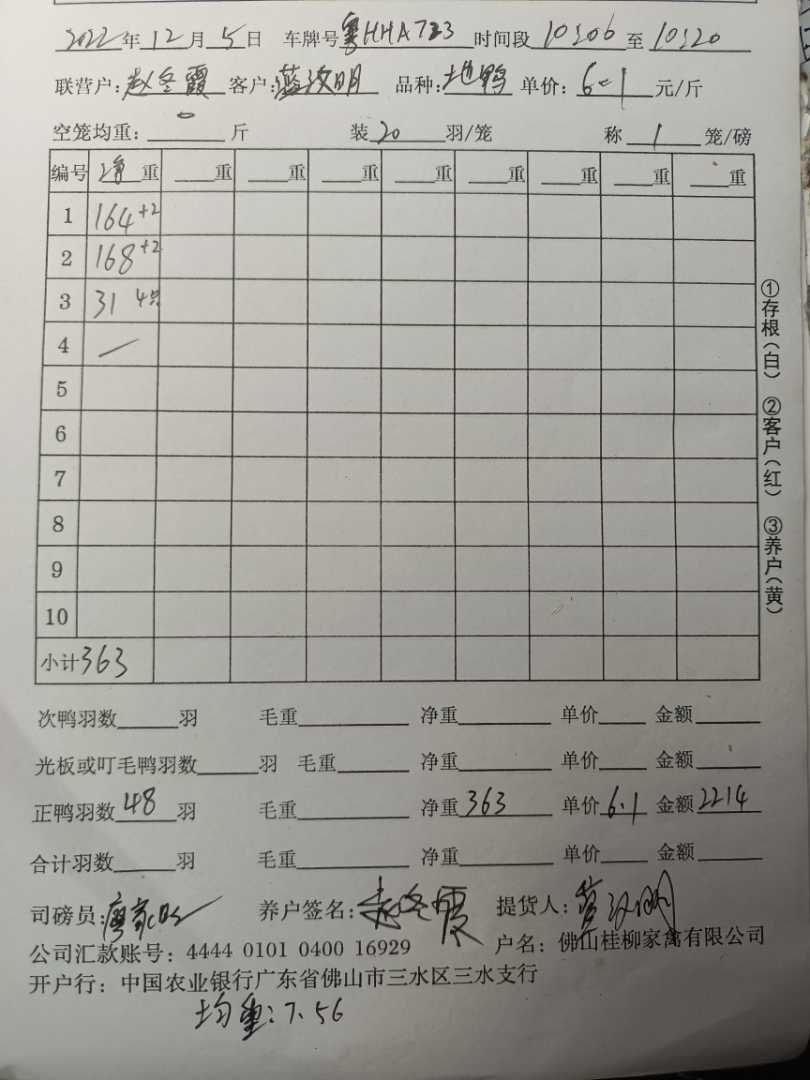 2022年12月5日 车牌号粤HHA723 时间段10:06至10:20
联营户:赵冬霞 客户:蓝汝明 品种:地鸭 单价:6-1元/斤
空笼均重:0斤 装20羽/笼 称1笼/磅
编号 净重 重 重 重 重 重 重 重 重
1 164+2
2 168+2
3 31 4只
4 /
5
6
7
8
9
10
小计363
①存根(白) ②客户(红) ③养户(黄)
次鸭羽数 羽 毛重 净重 单价 金额
光板或叮毛鸭羽数 羽 毛重 净重 单价 金额
正鸭羽数48羽 毛重 净重363 单价6.1 金额2214
合计羽数 羽 毛重 净重 单价 金额
司磅员: 养户签名:赵冬霞 提货人:蓝汝明
公司汇款账号:4444 0101 0400 16929 户名:佛山桂柳家禽有限公司
开户行:中国农业银行广东省佛山市三水区三水支行
均重:7.56